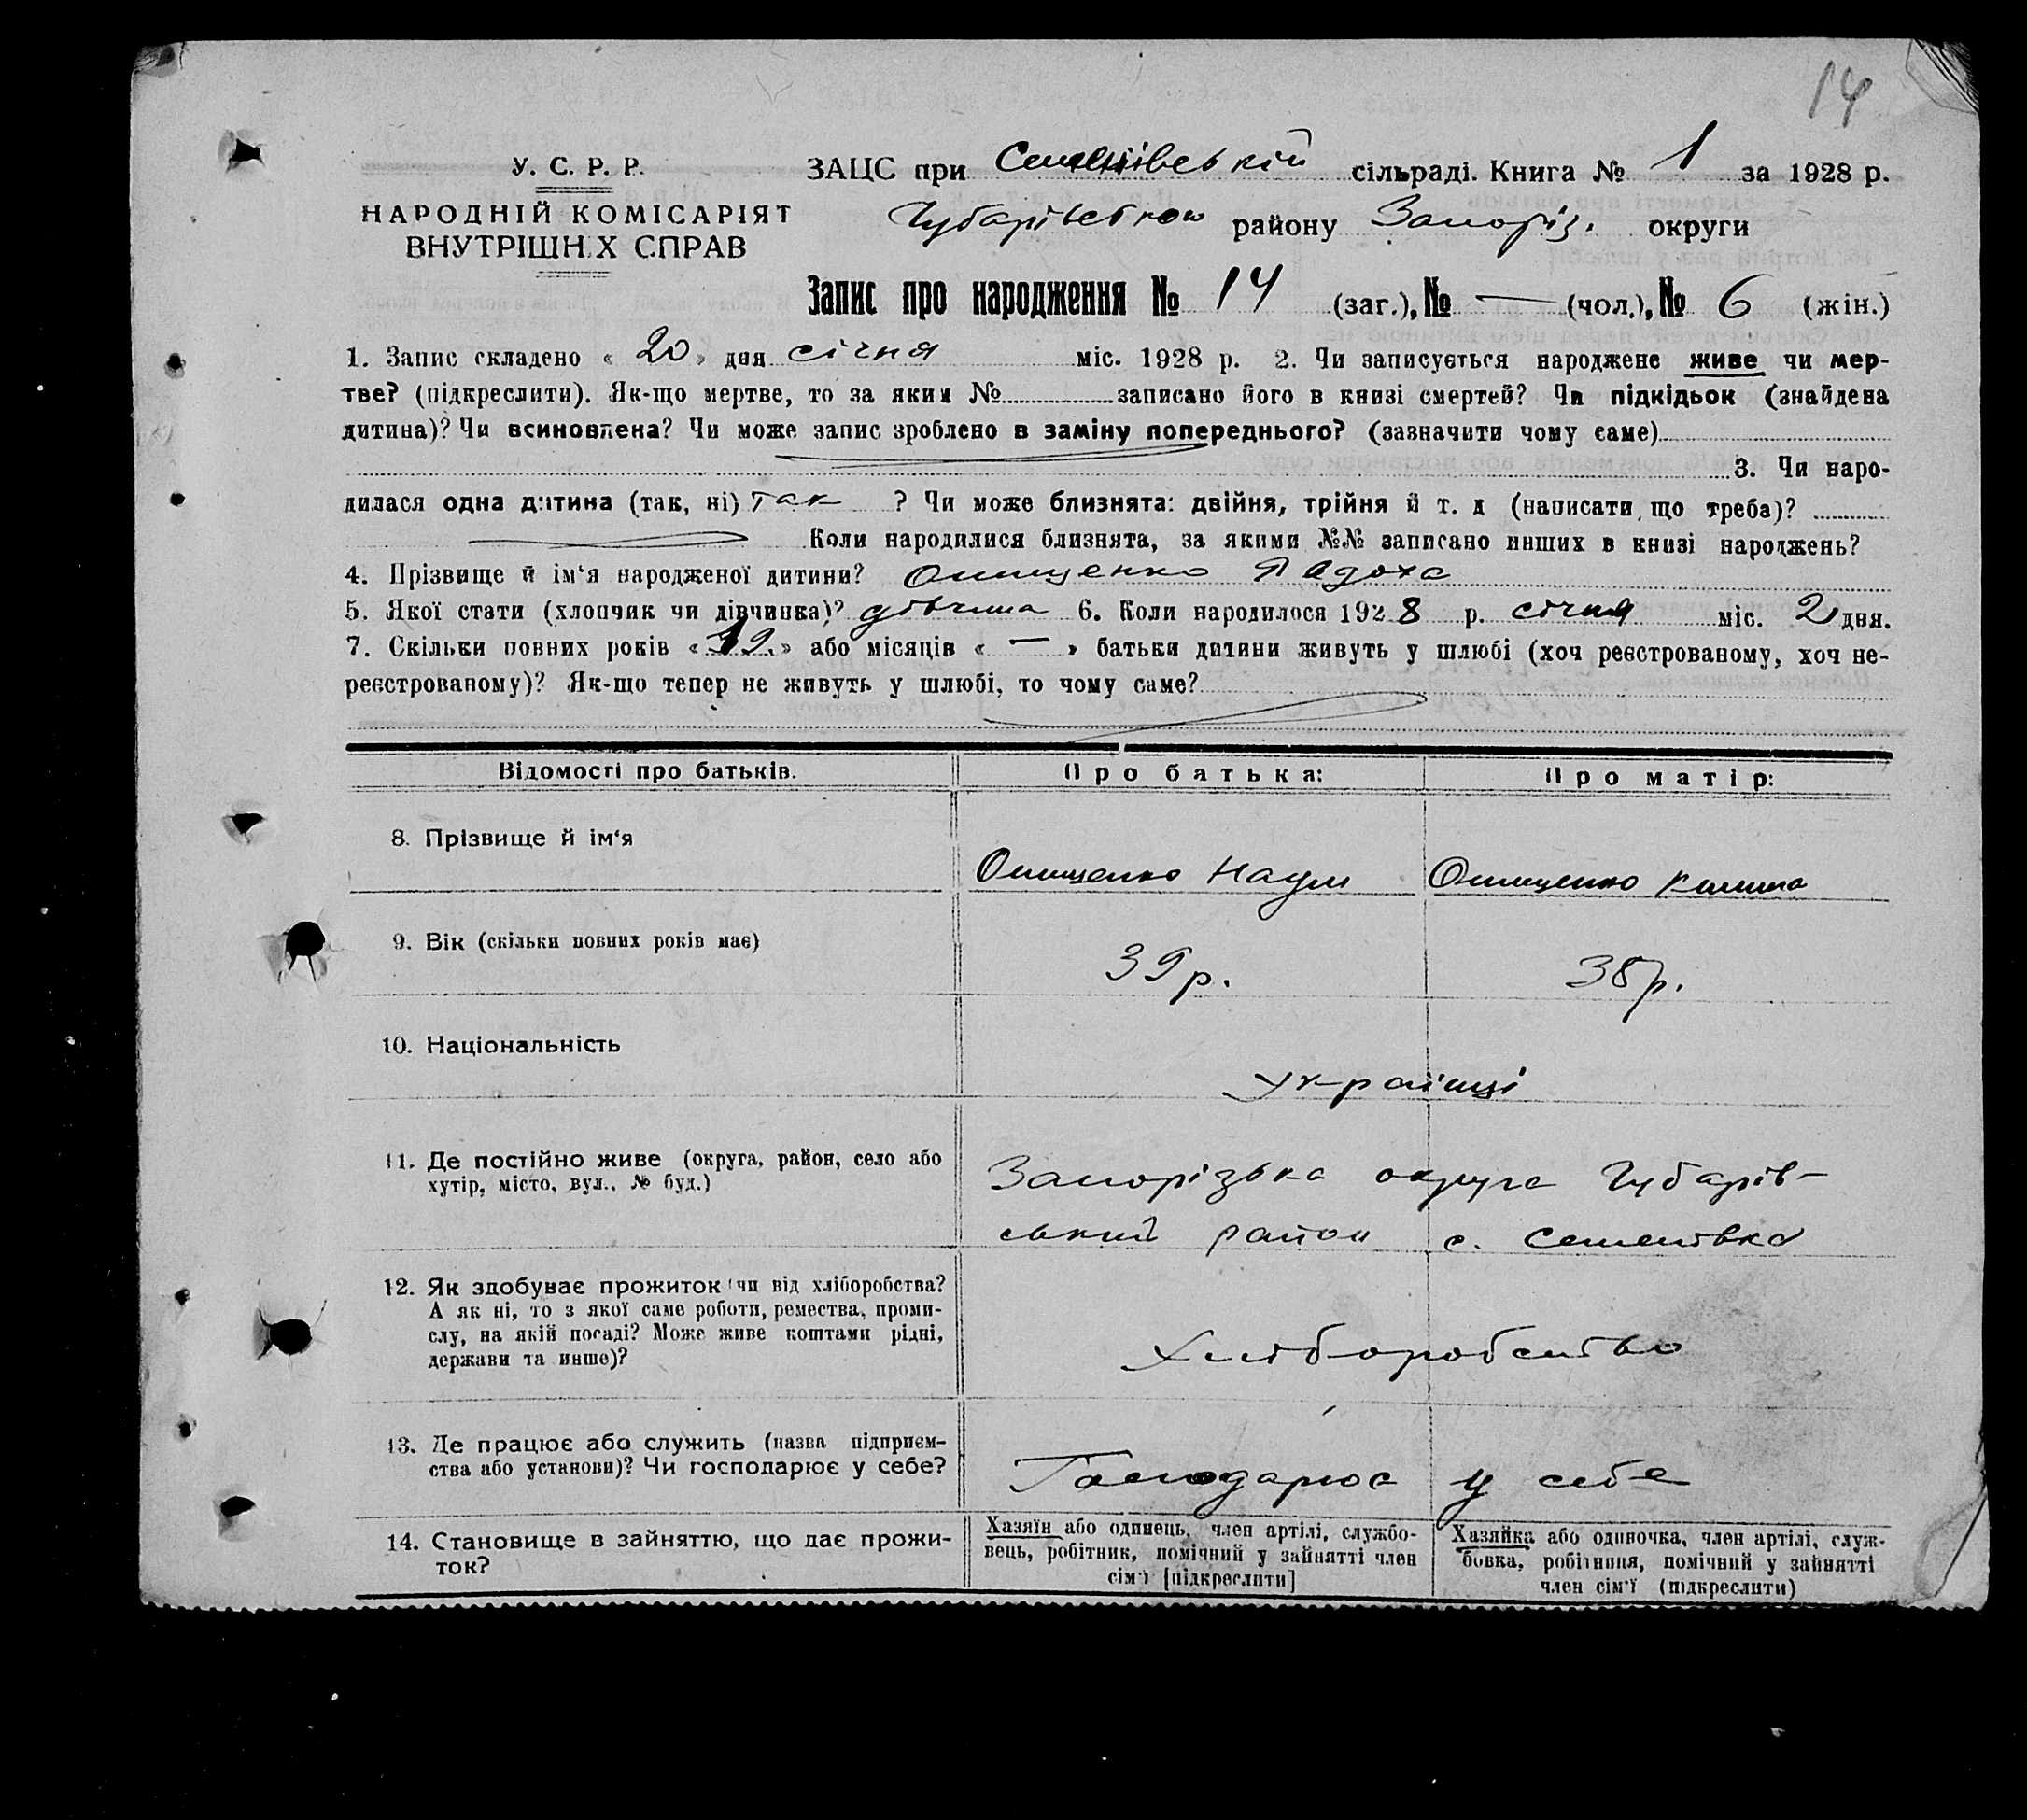 14
У. С. Р. Р.
НАРОДНІЙ КОМІСАРІЯТ
ВНУТРІШНІХ СПРАВ
ЗАЦС при Семенівській сільраді. Книга № 1 за 1928 р.
Чубарівського району Запоріз. округи
Запис про народження № 14 (заг.), № — (чол.), № 6 (жін.)
1. Запис складено « 20 » дня січня міс. 1928 р. 2. Чи записується народжене живе чи мер-
тве? (підкреслити). Як-що мертве, то за яким № записано його в книзі смертей? Чи підкідьок (знайдена
дитина)? Чи всиновлена? Чи може запис зроблено в заміну попереднього? (зазначити чому саме)
3. Чи наро-
дилася одна дитина (так, ні) так ? Чи може близнята: двійня, трійня й т. д (написати що треба)?
Коли народилися близнята, за якими №№ записано инших в книзі народжень?
4. Прізвище й ім‘я народженої дитини? Онищенко
5. Якої стати (хлопчик чи дівчинка)? дівчина 6. Коли народилося 1928 р. січня міс. 2 дня.
7. Скільки повних років « 19. » або місяців « — » батьки дитини живуть у шлюбі (хоч реєстрованому, хоч не-
реєстрованому)? Як-що тепер не живуть у шлюбі, то чому саме?
Відомості про батьків. Про батька: Про матір:
8. Прізвище й ім‘я Онищенко Наум Онищенко
9. Вік (скільки повних років має) 39 р. 38 р.
10. Національність українці
11. Де постійно живе (округа, район, село або
хутір, місто, вул., № буд.)
Запорізька округа Чубарів-
ський район с. Семенівка
12. Як здобуває прожиток (чи від хліборобства?
А як ні, то з якої саме роботи, ремества, проми-
слу, на якій посаді? Може живе коштами рідні,
держави та инше)?
Хліборобство
13. Де працює або служить (назва підприєм-
ства або установи)? Чи господарює у себе?
Господарює у себе
14. Становище в зайняттю, що дає прожи-
ток?
Хазяїн або одинець, член артілі, службо-
вець, робітник, помічний у зайнятті член
сім‘ї [підкреслити]
Хазяйка або одиночка, член артілі, служ-
бовка, робітниця, помічний у зайнятті
член сім‘ї (підкреслити)